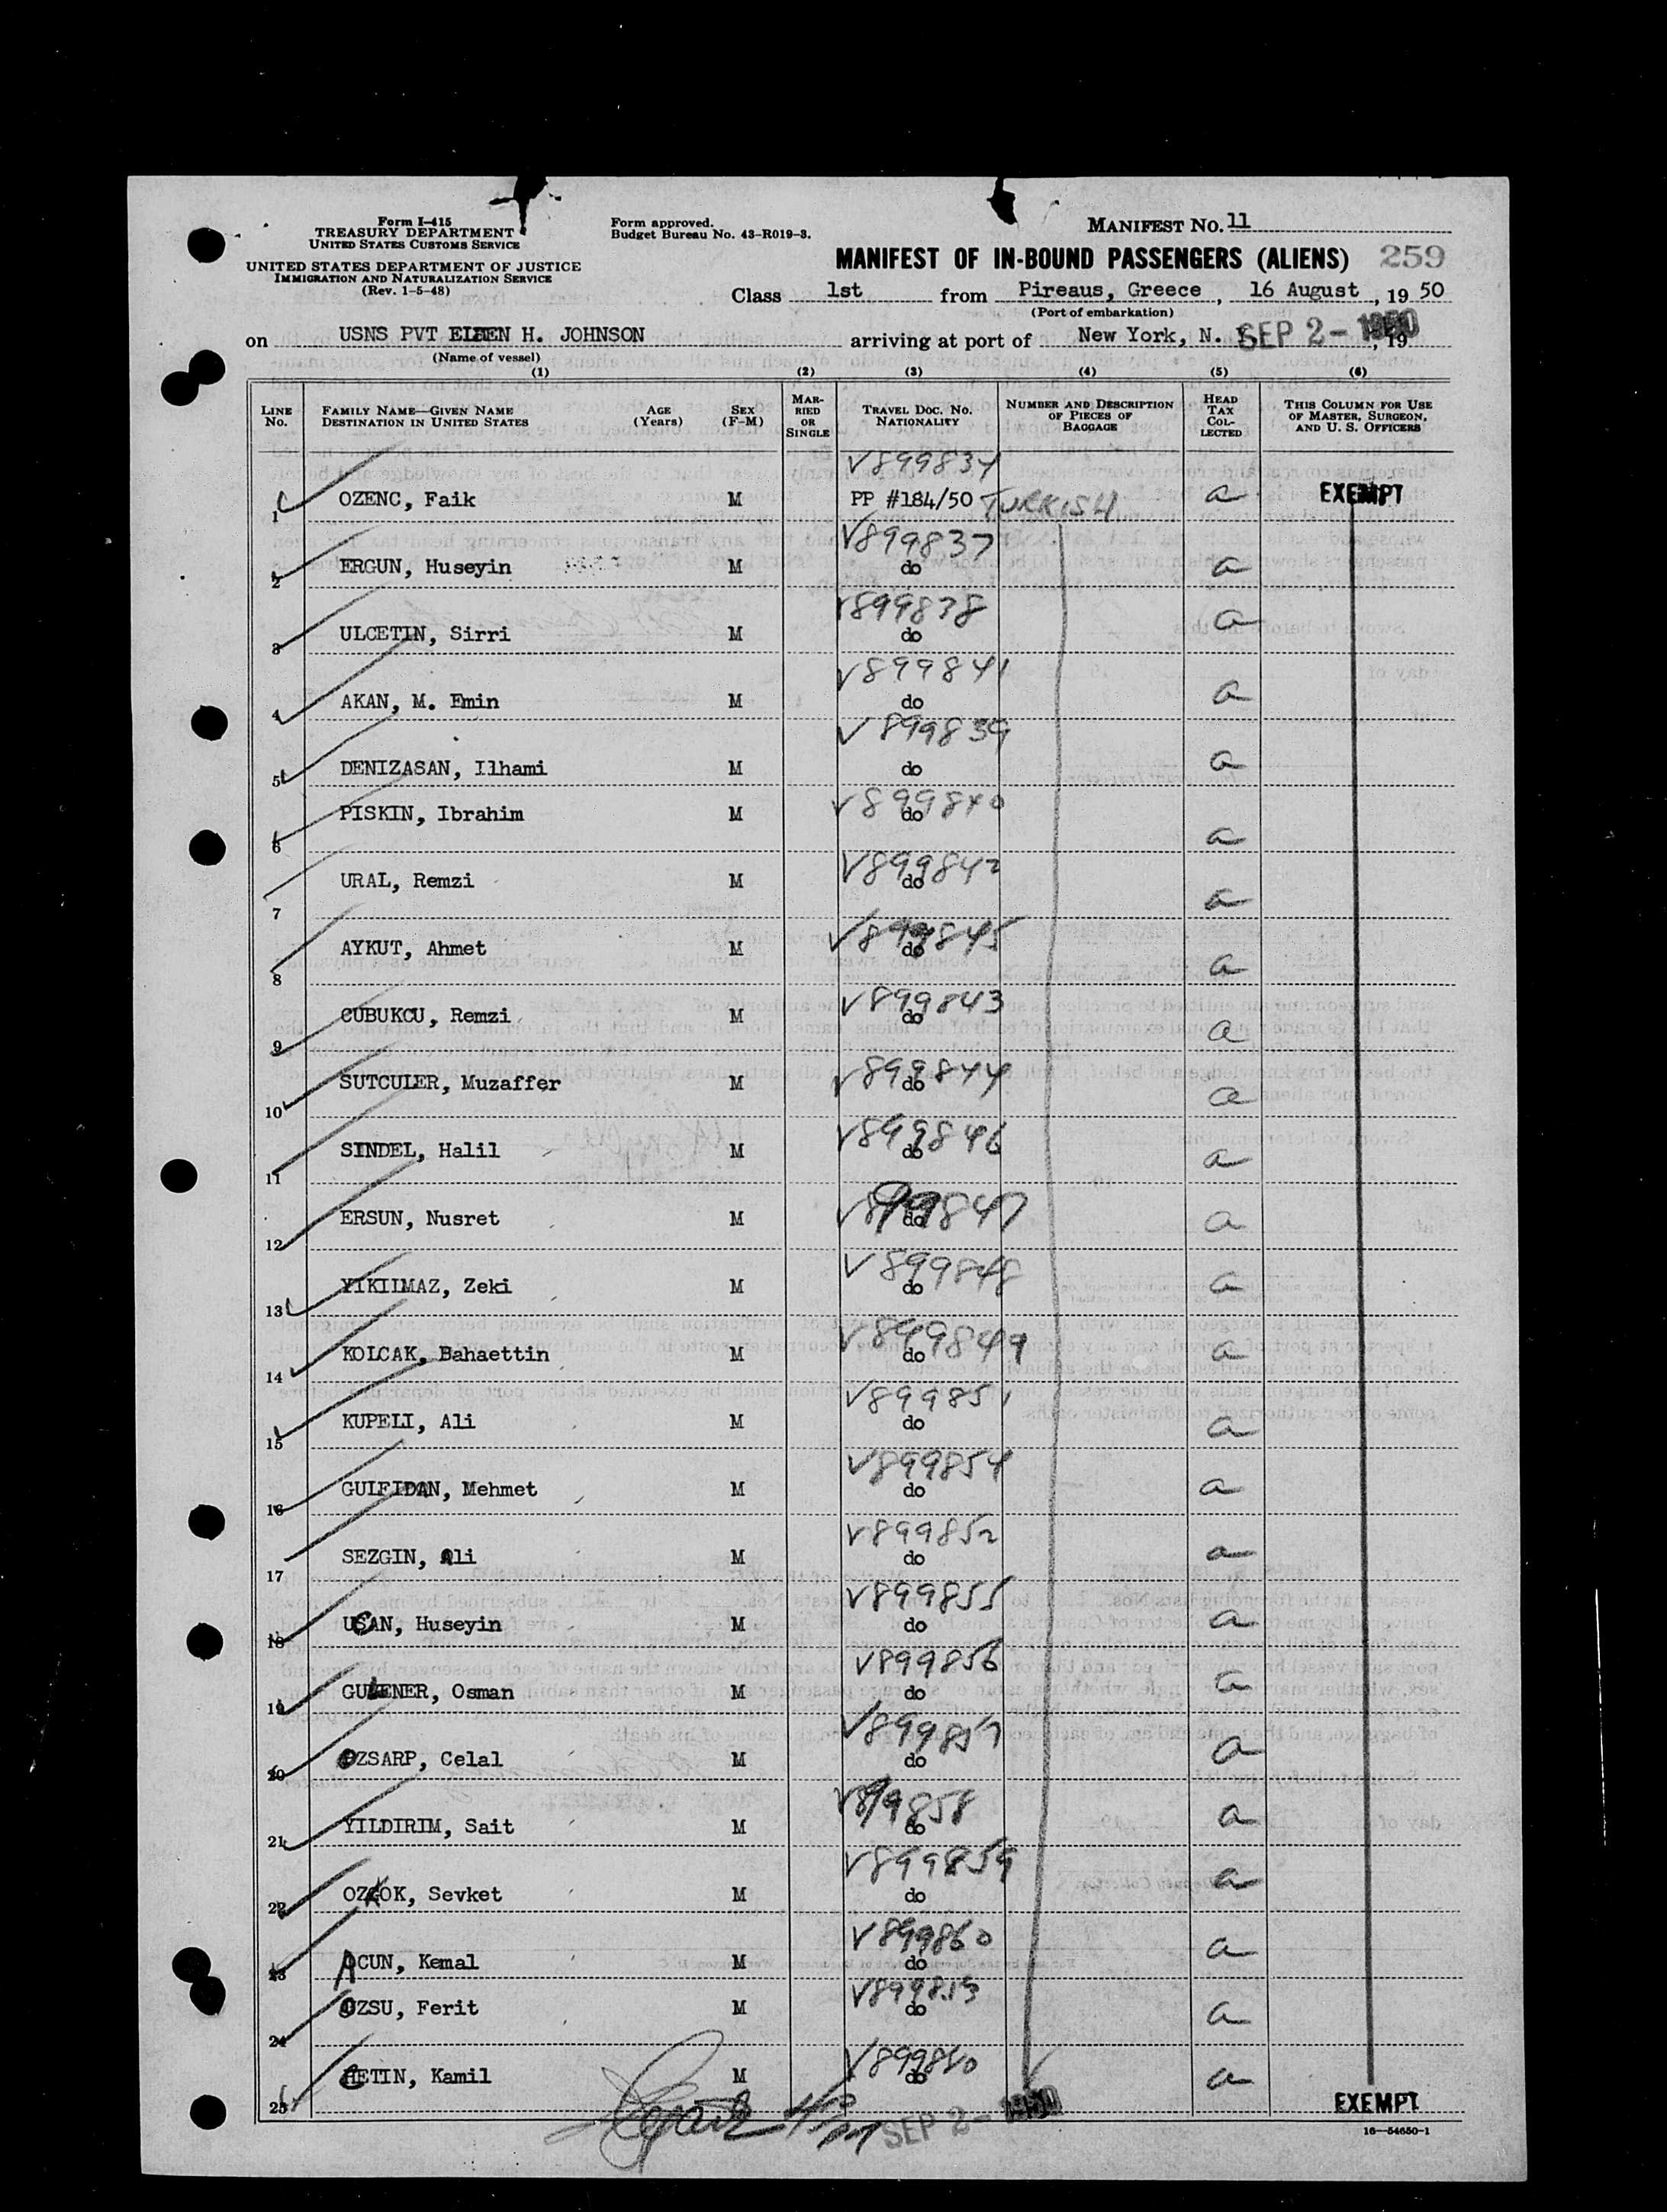 Form I-415
TREASURY DEPARTMENT
UNITED STATES CUSTOMS SERVICE
UNITED STATES DEPARTMENT OF JUSTICE
IMMIGRATION AND NATURALIZATION SERVICE
(Rev. 1-5-48)
Form approved.
Budget Bureau No. 43-R019-3.
MANIFEST NO. 11
MANIFEST OF IN-BOUND PASSENGERS (ALIENS) 259
Class 1st from Pireaus, Greece, 16 August, 19 50
(Port of embarkation)
on USNS PVT ELDEN H. JOHNSON arriving at port of New York, N. SEP 2 - 1950, 19
(Name of vessel)
(1) (2) (3) (4) (5) (6)
LINE No. FAMILY NAME—GIVEN NAME DESTINATION IN UNITED STATES AGE (Years) SEX (F-M) MARRIED OR SINGLE TRAVEL DOC. NO. NATIONALITY NUMBER AND DESCRIPTION OF PIECES OF BAGGAGE HEAD TAX COLLECTED THIS COLUMN FOR USE OF MASTER, SURGEON, AND U. S. OFFICERS
V899834
1 OZENC, Faik M PP #184/50 TURKISH a EXEMPT
V899837
2 ERGUN, Huseyin M do a
V899838
3 ULCETIN, Sirri M do a
V899841
4 AKAN, M. Emin M do a
V899839
5 DENIZASAN, Ilhami M do a
V899840
6 PISKIN, Ibrahim M do a
V899842
7 URAL, Remzi M do a
V899845
8 AYKUT, Ahmet M do a
V899843
9 CUBUKCU, Remzi M do a
V899844
10 SUTCULER, Muzaffer M do a
V899846
11 SINDEL, Halil M do a
V899847
12 ERSUN, Nusret M do a
V899848
13 YIKILMAZ, Zeki M do a
V899849
14 KOLCAK, Bahaettin M do a
V899851
15 KUPELI, Ali M do a
V899854
16 GULFIDAN, Mehmet M do a
V899852
17 SEZGIN, Ali M do a
V899855
18 UCAN, Huseyin M do a
V899856
19 GULENER, Osman M do a
V899857
20 OZSARP, Celal M do a
V899858
21 YILDIRIM, Sait M do a
V899859
22 OZKOK, Sevket M do a
V899860
23 ACUN, Kemal M do a
24 OZSU, Ferit M do a
25 CETIN, Kamil M do a
EXEMPT
SEP 2 - 1950
16—54650-1